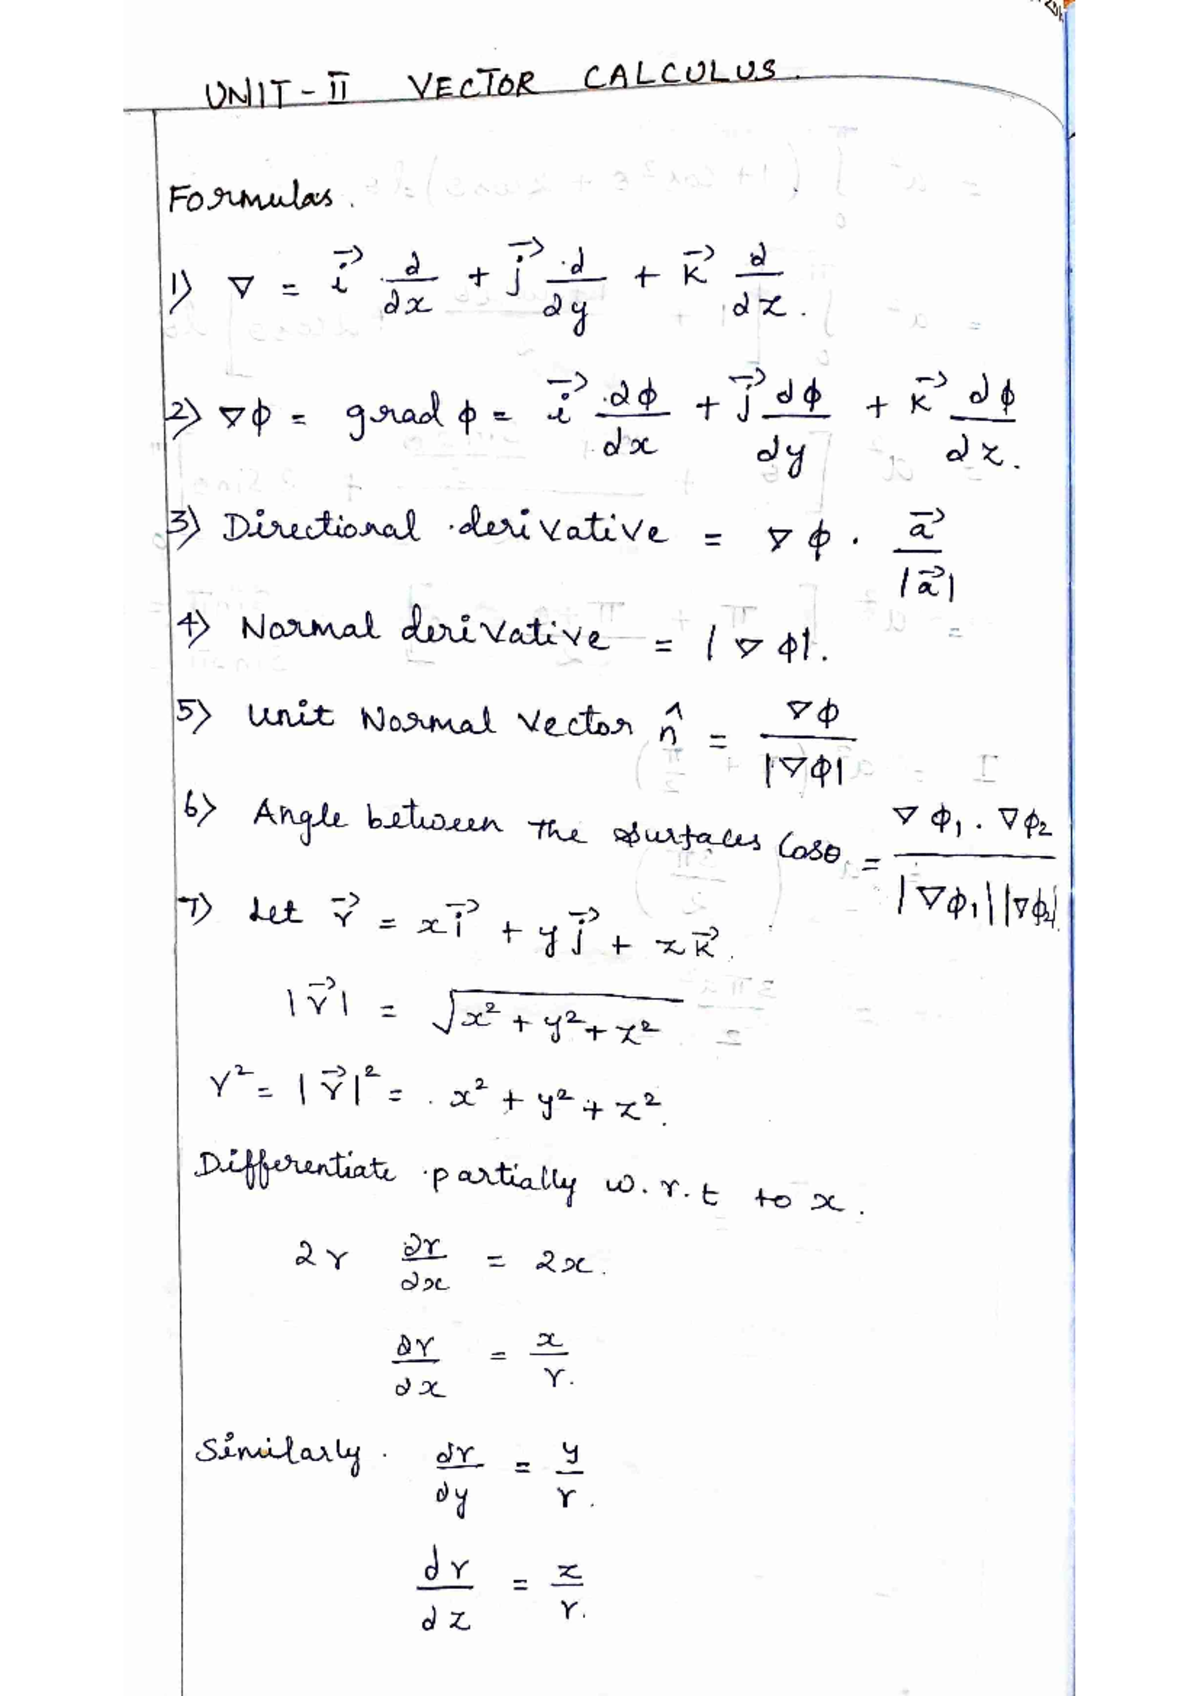 UNIT - II VECTOR CALCULUS.
Formulas.
1) ∇ = i⃗ ∂/∂x + j⃗ ∂/∂y + k⃗ ∂/∂z.
2) ∇φ = grad φ = i⃗ ∂φ/∂x + j⃗ ∂φ/∂y + k⃗ ∂φ/∂z.
3) Directional derivative = ∇φ . a⃗/|a⃗|
4) Normal derivative = |∇φ|.
5) Unit Normal Vector n̂ = ∇φ/|∇φ|
6) Angle between the surfaces Cosθ = ∇φ₁ . ∇φ₂/|∇φ₁||∇φ₂|.
7) Let r⃗ = xi⃗ + yj⃗ + zk⃗.
|r⃗| = √(x² + y² + z²)
r² = |r⃗|² = x² + y² + z².
Differentiate partially w.r.t to x.
2r ∂r/∂x = 2x.
∂r/∂x = x/r.
Similarly. ∂r/∂y = y/r.
∂r/∂z = z/r.